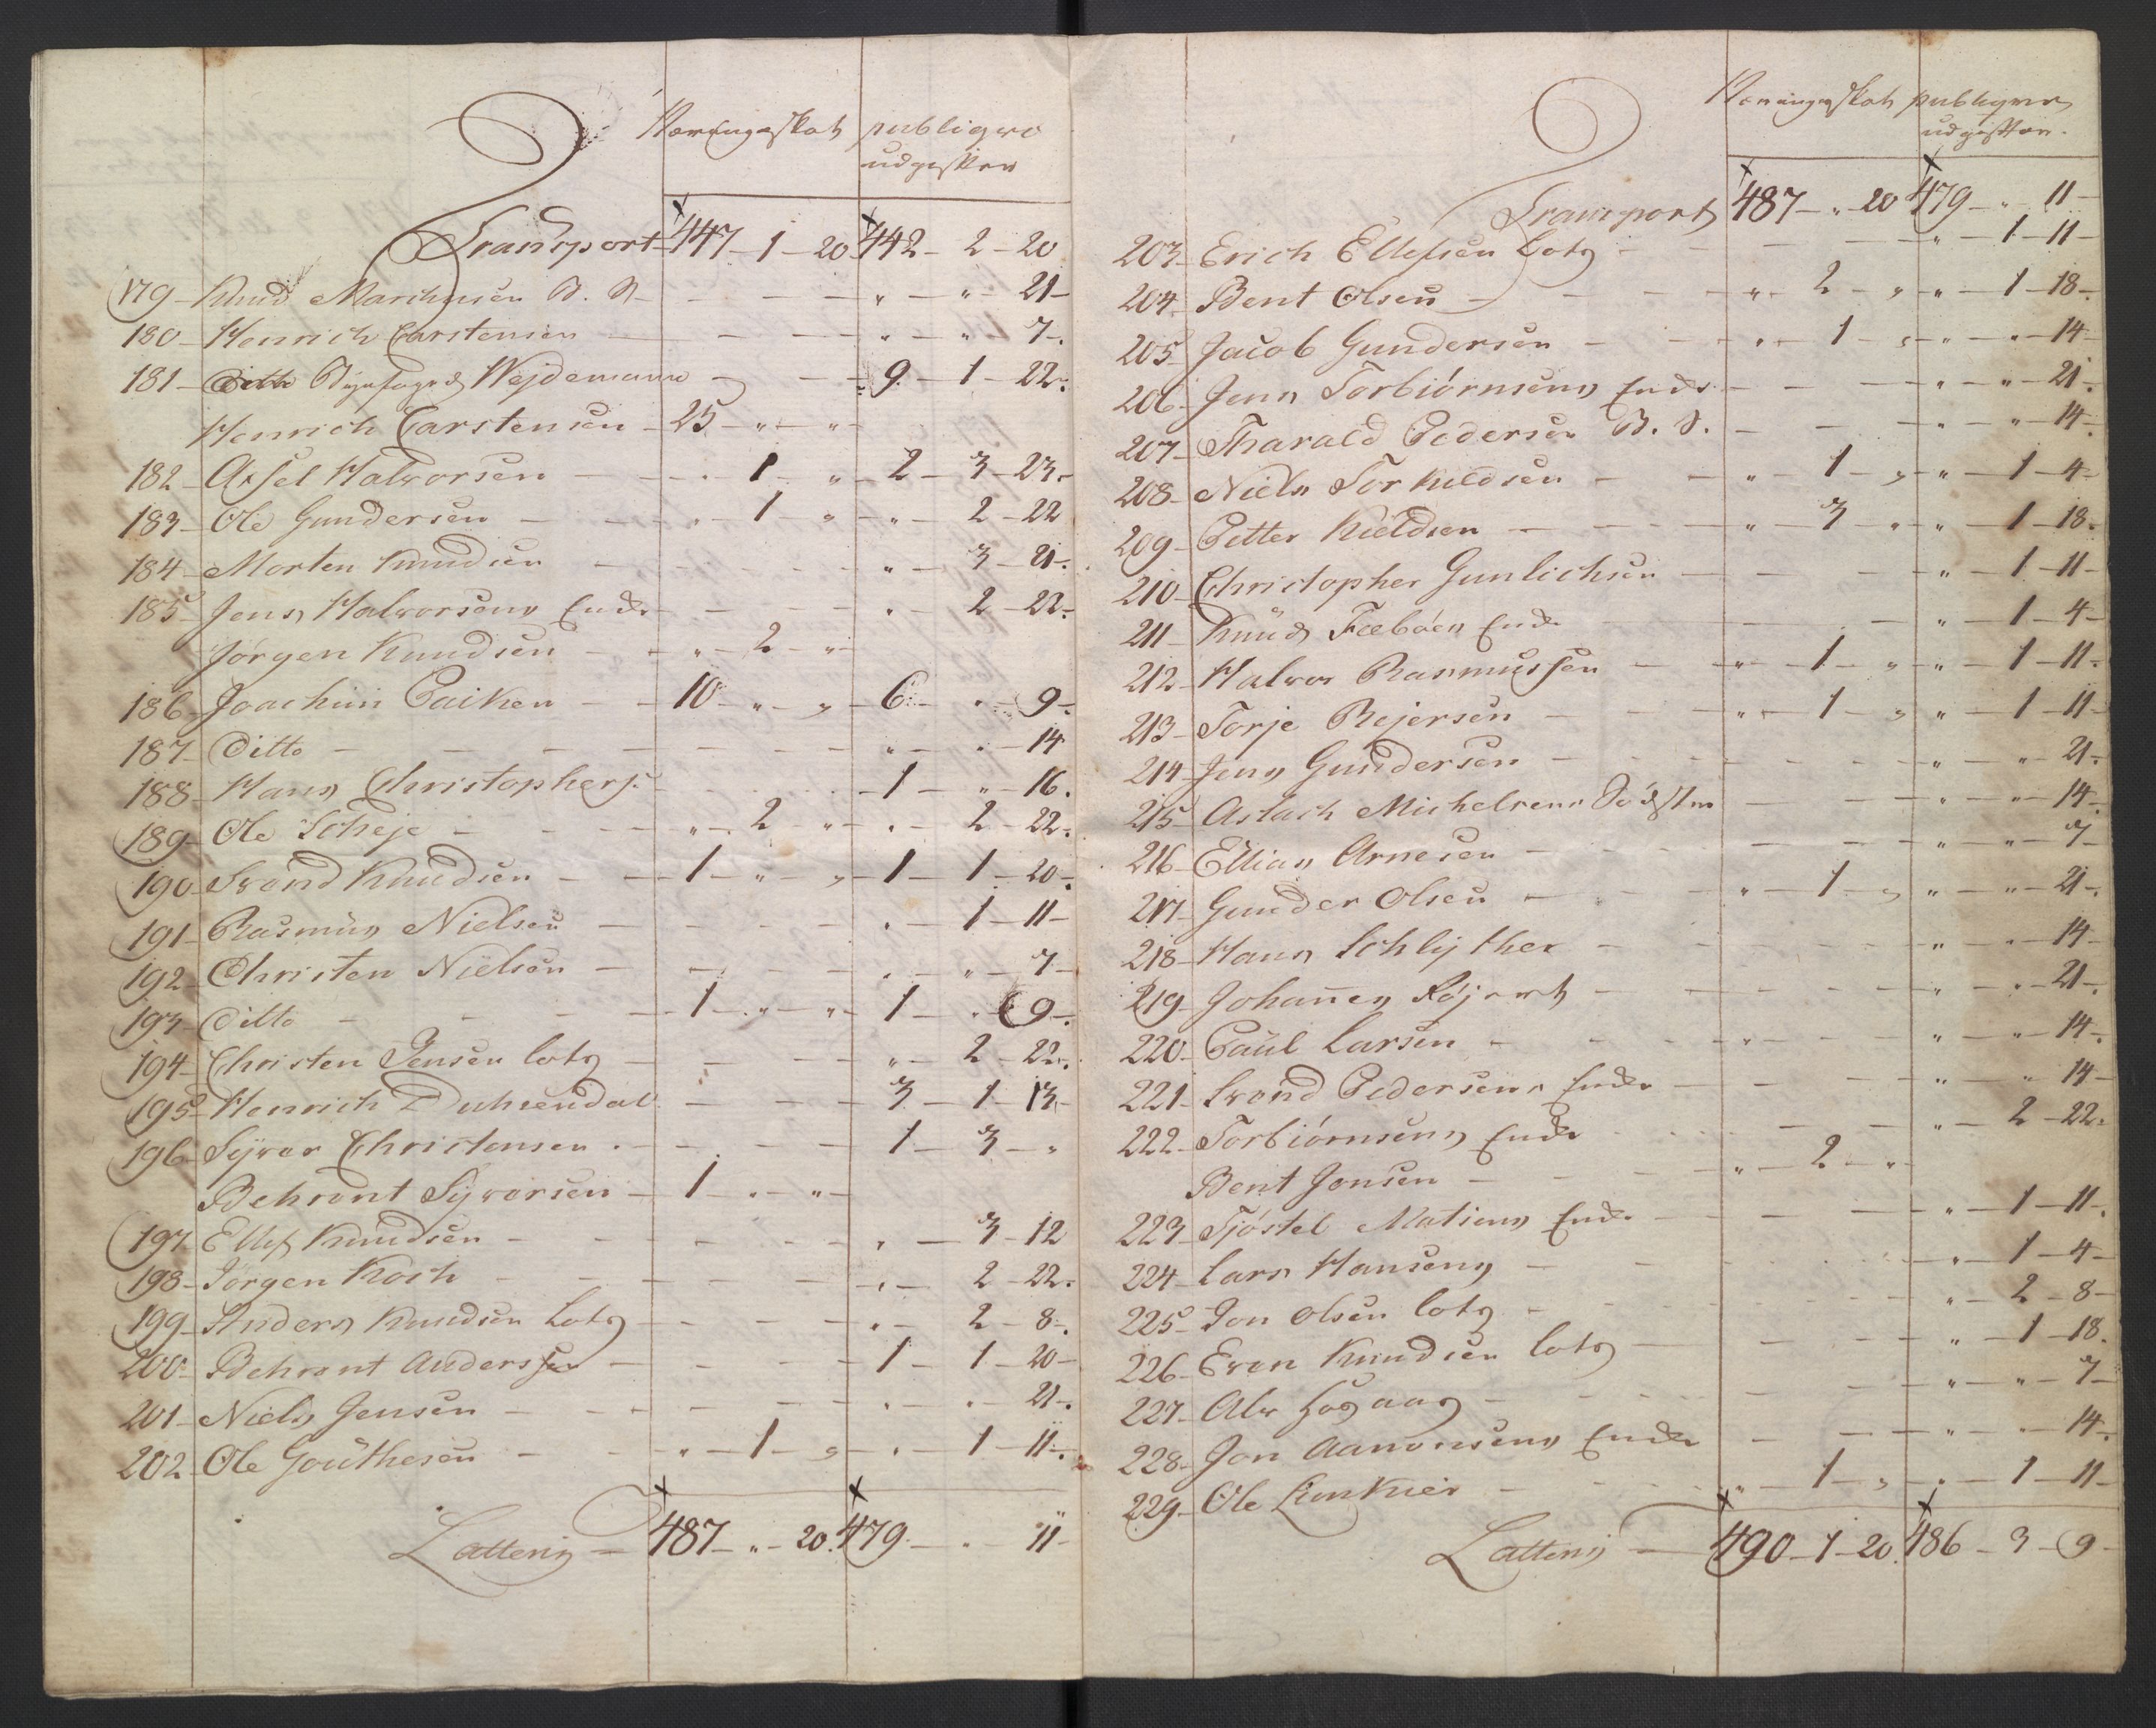 Næringsskat publiqve
udgifter
Transport 447 - 1 - 20 442 - 2 - 20
179 - Knud B. S - - - - " - " - 21 -
180 - Henrich Carstensen - - - " - " - 7 -
181 - Ditto Byefoged Wejdemann - - - 9 - 1 - 22.
Henrich Carstensen - 25 - " - "
182 - Axsel Halvorsen - - 1 " - 2 - 3 - 23 -
183 - Ole Gundersen - - 1 " - " 2 - 22
184 - Morten Knudsen - - - " - 3 - 21 -
185 - Jens Halvorsens Enke - - - " - 2 - 22 -
Jörgen Knudsen - - " - 2 - "
186 - Joachim Paiken - - 10 - " - " - 6 - " - 9 -
187 - Ditto - - - - " - " - 14
188 - Hans Christophers. - 1 - " - 16.
189 - Ole Scheje - - " - 2 - " - " - 2 - 22 -
190 - Trond Knudsen - - 1 - " - " - 1 - 1 - 20 -
191 - Rasmus Nielsen - - - " - 1 - 11 -
192 - Christen Nielsen - - - " - " - 7 -
193 - Ditto - - - 1 - " - " - 1 - " - 9 -
194 - Christen Jensen Lots - - - " - 2 - 22 -
195 - Henrich Duhsendal - - - 3 - 1 - 13 -
196 - Syver Christensen - - - 1 - 3 - "
Behront Syversen - 1 - " - "
197 - Ellef Knudsen - - - " - 3 - 12
198 - Jörgen Koch - - - " - 2 - 22 -
199 - Anders Knudsen Lots - - - " - 2 - 8 -
200 - Behront Anderssen - - - 1 - 1 - 20 -
201 - Niels Jensen - - - " - " - 21 -
202 - Ole Gouthesen - - " - 1 - " - " 1 - 11 -
Lattering - 487 - " - 20. 479 - " - 11 -
Næringsskat publiqve
udgifter
Transport 487 - " - 20 479 - " - 11 -
203 - Erich Ellefsen Lots - - - " - 1 - 11 -
204 - Bent Olsen - - " - 2 - " - " - 1 - 18 -
205 - Jacob Gundersen - - " - 1 - " - " - " - 14 -
206 - Jens Torbiörnsens Enke - - - " - " - 21 -
207 - Tharald Pedersen B. S. - - - " - " - 14 -
208 - Niels Torkildsen - - " - 1 - " - " - 1 - 4 -
209 - Petter Kieldsen - - " - 3 " - " - 1 - 18 -
210 - Christopher Gunlichsen - - - " - 1 - 11 -
211 - Knud Fæböes Enke - - - " - 1 - 4 -
212 - Halvor Rasmussen - - " - 1 - " - " - 1 - 11 -
213 - Torje Rejersen - - " - 1 - " - " - 1 - 11 -
214 - Jens Gundersen - - - " - " - 21 -
215 - Aslach Michelsens - - - " - " - 14 -
216 - Ellias Arnesen - - - " - " - 7 -
217 - Gunder Olsen - - " - 1 - " - " - " - 21 -
218 - Hans Schlyther - - - " - " - 14 -
219 - Johannes - - - " - " - 21 -
220 - Paul Larsen - - - " - " - 14 -
221 - Trond Pedersens Enke - - - " - " - 14 -
222 - Torbiörnsens Enke - - - " - 2 - 22 -
Bent Jonsen - - " - 2 - "
223 - Tjöstel Matiens Enke - - - " - 1 - 11 -
224 - Lars Hansens - - - " - 1 - 4 -
225 - Jon Olsen Lots - - - " - 2 - 8 -
226 - Even Knudsen Lots - - - " - 1 - 18.
227 - Alv - - - " - " - 7 -
228 - Jon Aanonsens Enke - - - " - " - 14 -
229 - Ole - - " - 1 - " - " - 1 - 11 -
Lattering - 490 - 1 - 20. 486 - 3 - 9 -